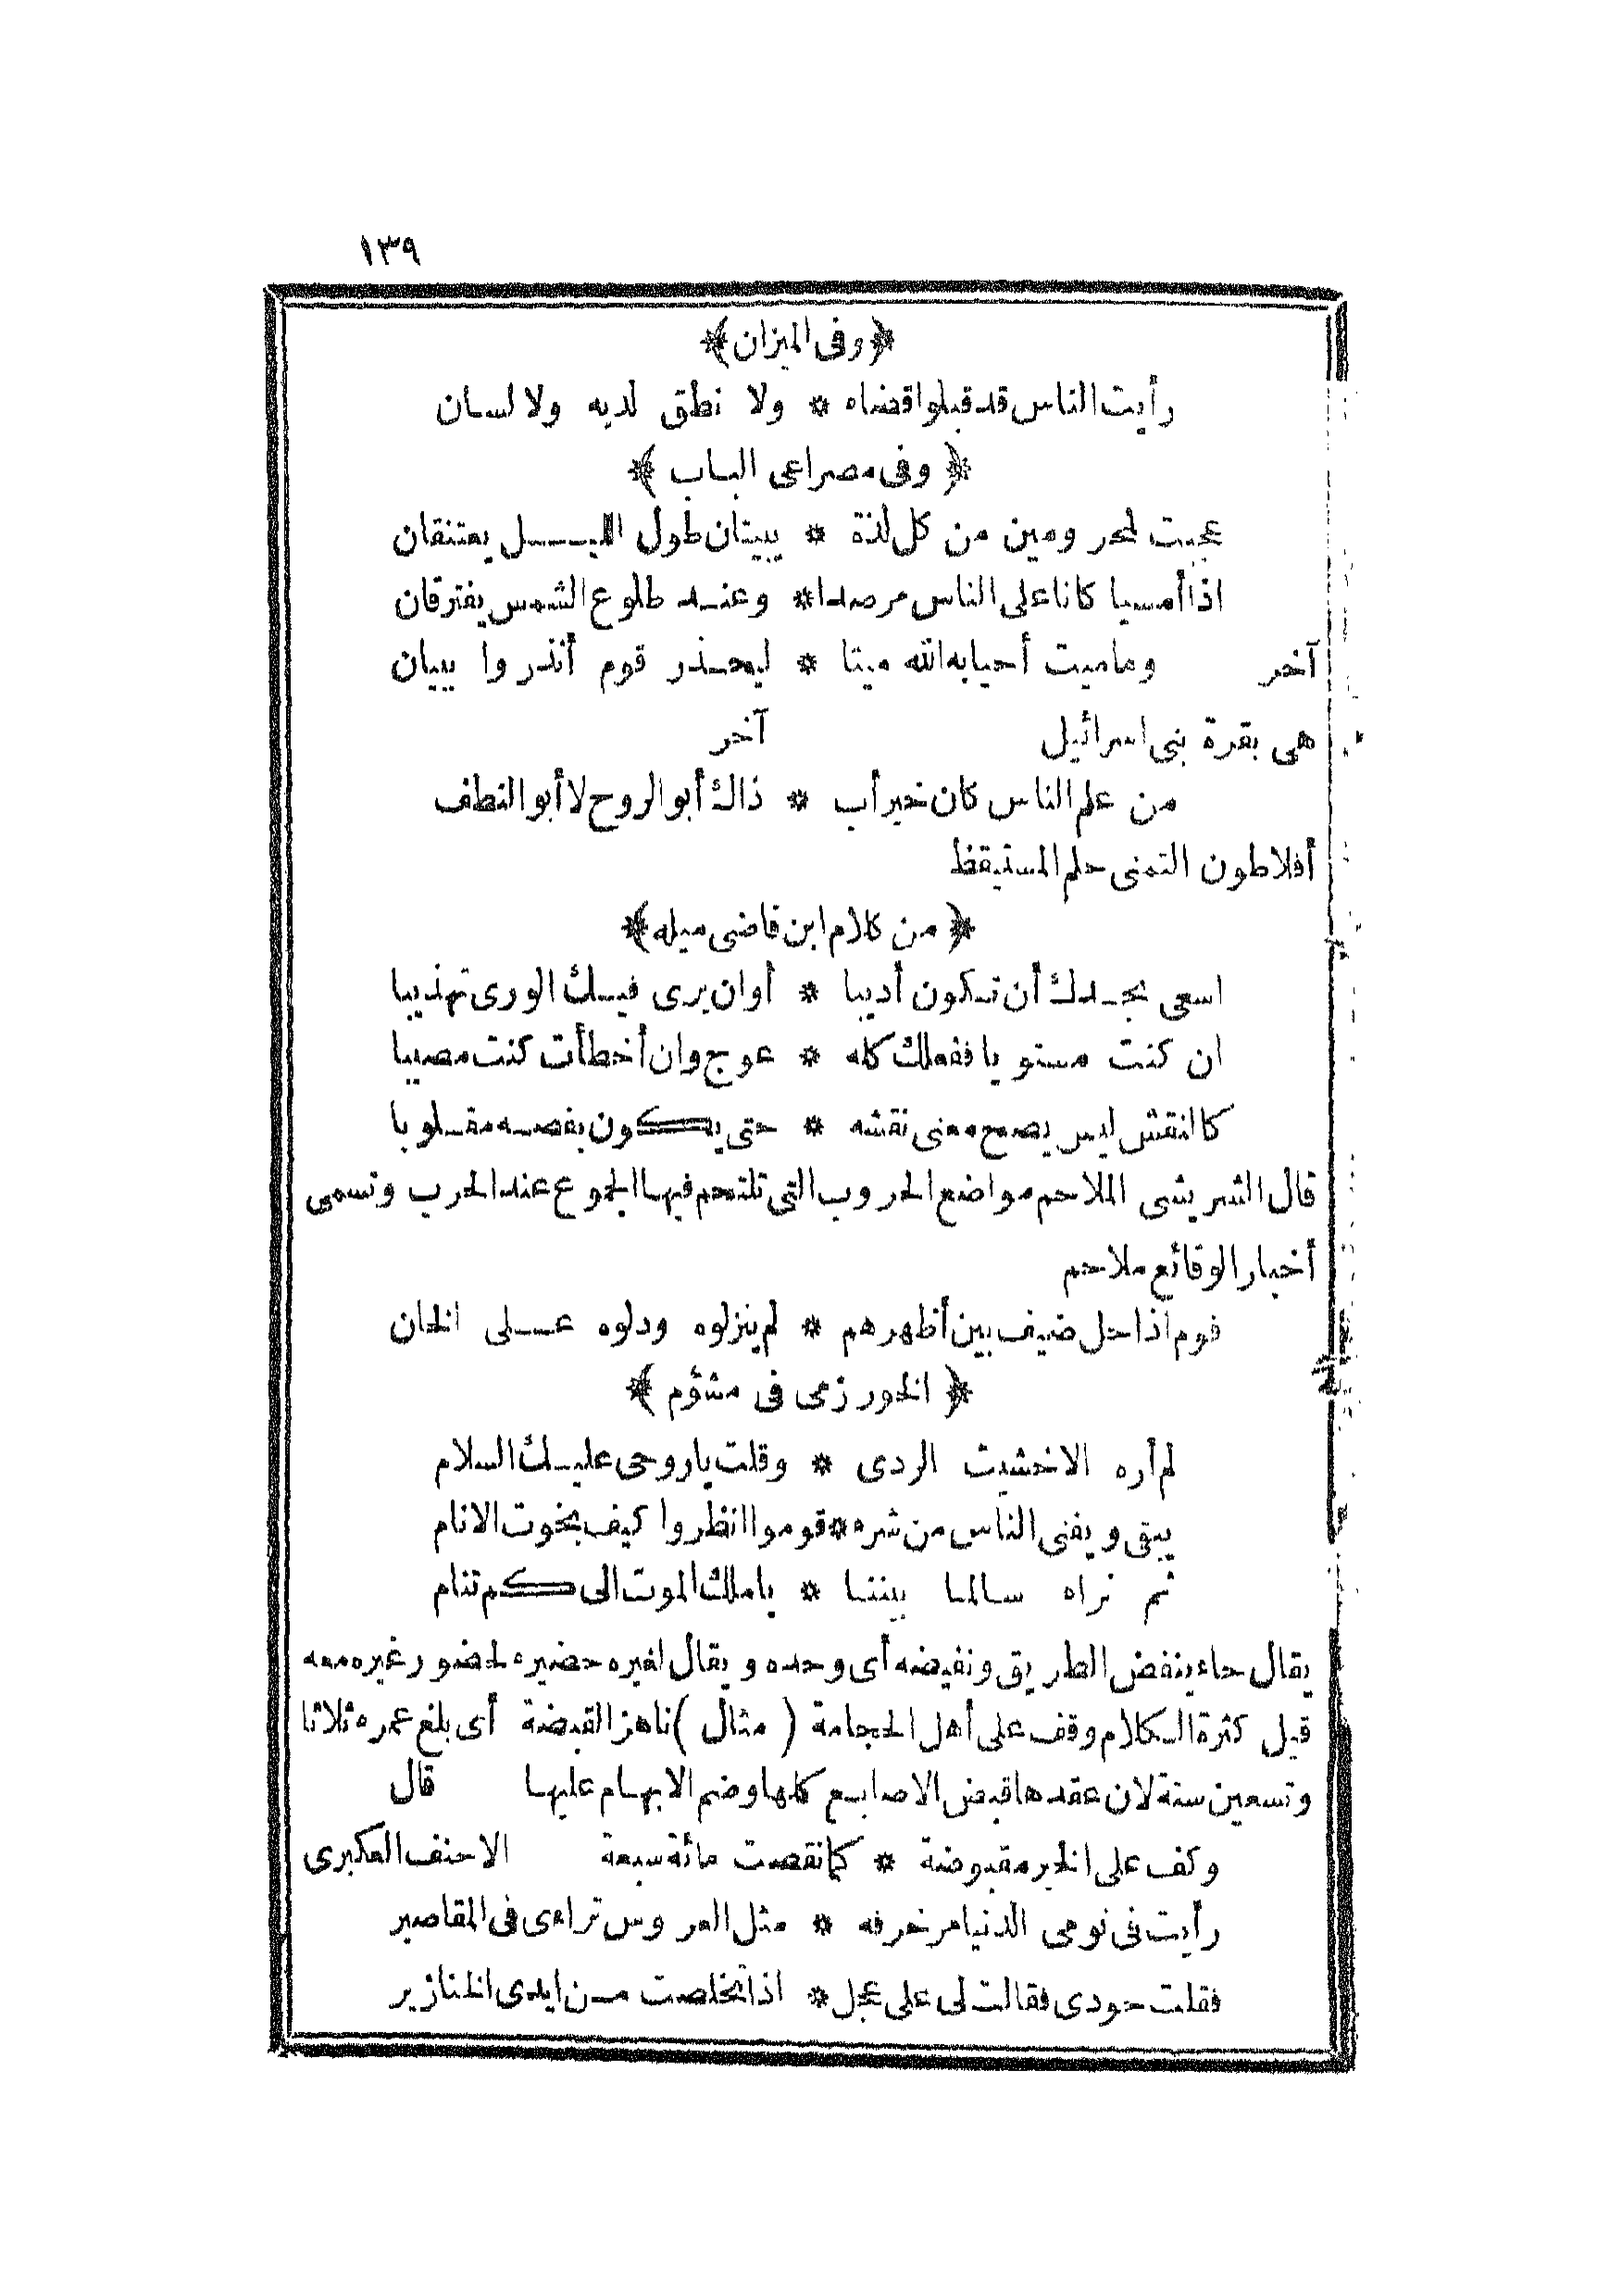 ١٣٩
﴿وفى الميزان﴾
رأيت الناس قد قبلوا قضاه * ولا نطق لديه ولا لسان
﴿ وفى مصراعى الباب ﴾
عجبت لمحرومين من كل لذة * يبيتان طول الليـــل يعتنقان
اذا أمسيا كانا على الناس مرصدا * وعنــد طلوع الشمس يفترقان
آخر وما ميت أحيا به الله ميتا * ليحــذر قوم أنذروا ببيان
هى بقرة بنى اسرائيل آخر
من علم الناس كان خير أب * ذاك أبو الروح لا أبو النطف
أفلاطون التمنى حلم المستيقظ
﴿ من كلام ابن قاضى ميله ﴾
اسعى بجــدك أن تكون أديبا * أو ان يرى فيــك الورى تهذيبا
ان كنت مستويا ففعلك كله * عوج وان أخطأت كنت مصيبا
كالنقش ليس يصح معنى نقشه * حتى يكون بفصــه مقــلوبا
قال الشريشى الملاحم مواضع الحروب التى تلتحم فيها الجموع عند الحرب وتسمى
أخبار الوقائع ملاحم
قوم اذا حل ضيف بين أظهرهم * لم ينزلوه ودلوه عــلى الخان
﴿ الخورزمى فى مشؤم ﴾
لم أره الا خشيت الردى * وقلت يا روحى عليــك السلام
يبقى ويفنى الناس من شره * قوموا انظروا كيف بخوت الانام
ثم نراه سالما بيننا * يا ملك الموت الى كم تنام
يقال جاء ينفض الطريق ونفيضه أى وحده ويقال لغيره حضيره لحضور غيره معه
قيل كثرة الكلام وقف على أهل الحجامة ( مثال ) ناهز القبضة أى بلغ عمره ثلاثا
وتسعين سنة لان عقدها قبض الاصابع كلها وضم الابهام عليها قال
وكف على الخير مقبوضة * كما نقصت مائة سبعة الاحنف العكبرى
رأيت فى نومى الدنيا مزخرفه * مثل العروس تراءى فى المقاصير
فقلت جودى فقالت لى على عجل * اذا تخلصت مــن ايدى الخنازير